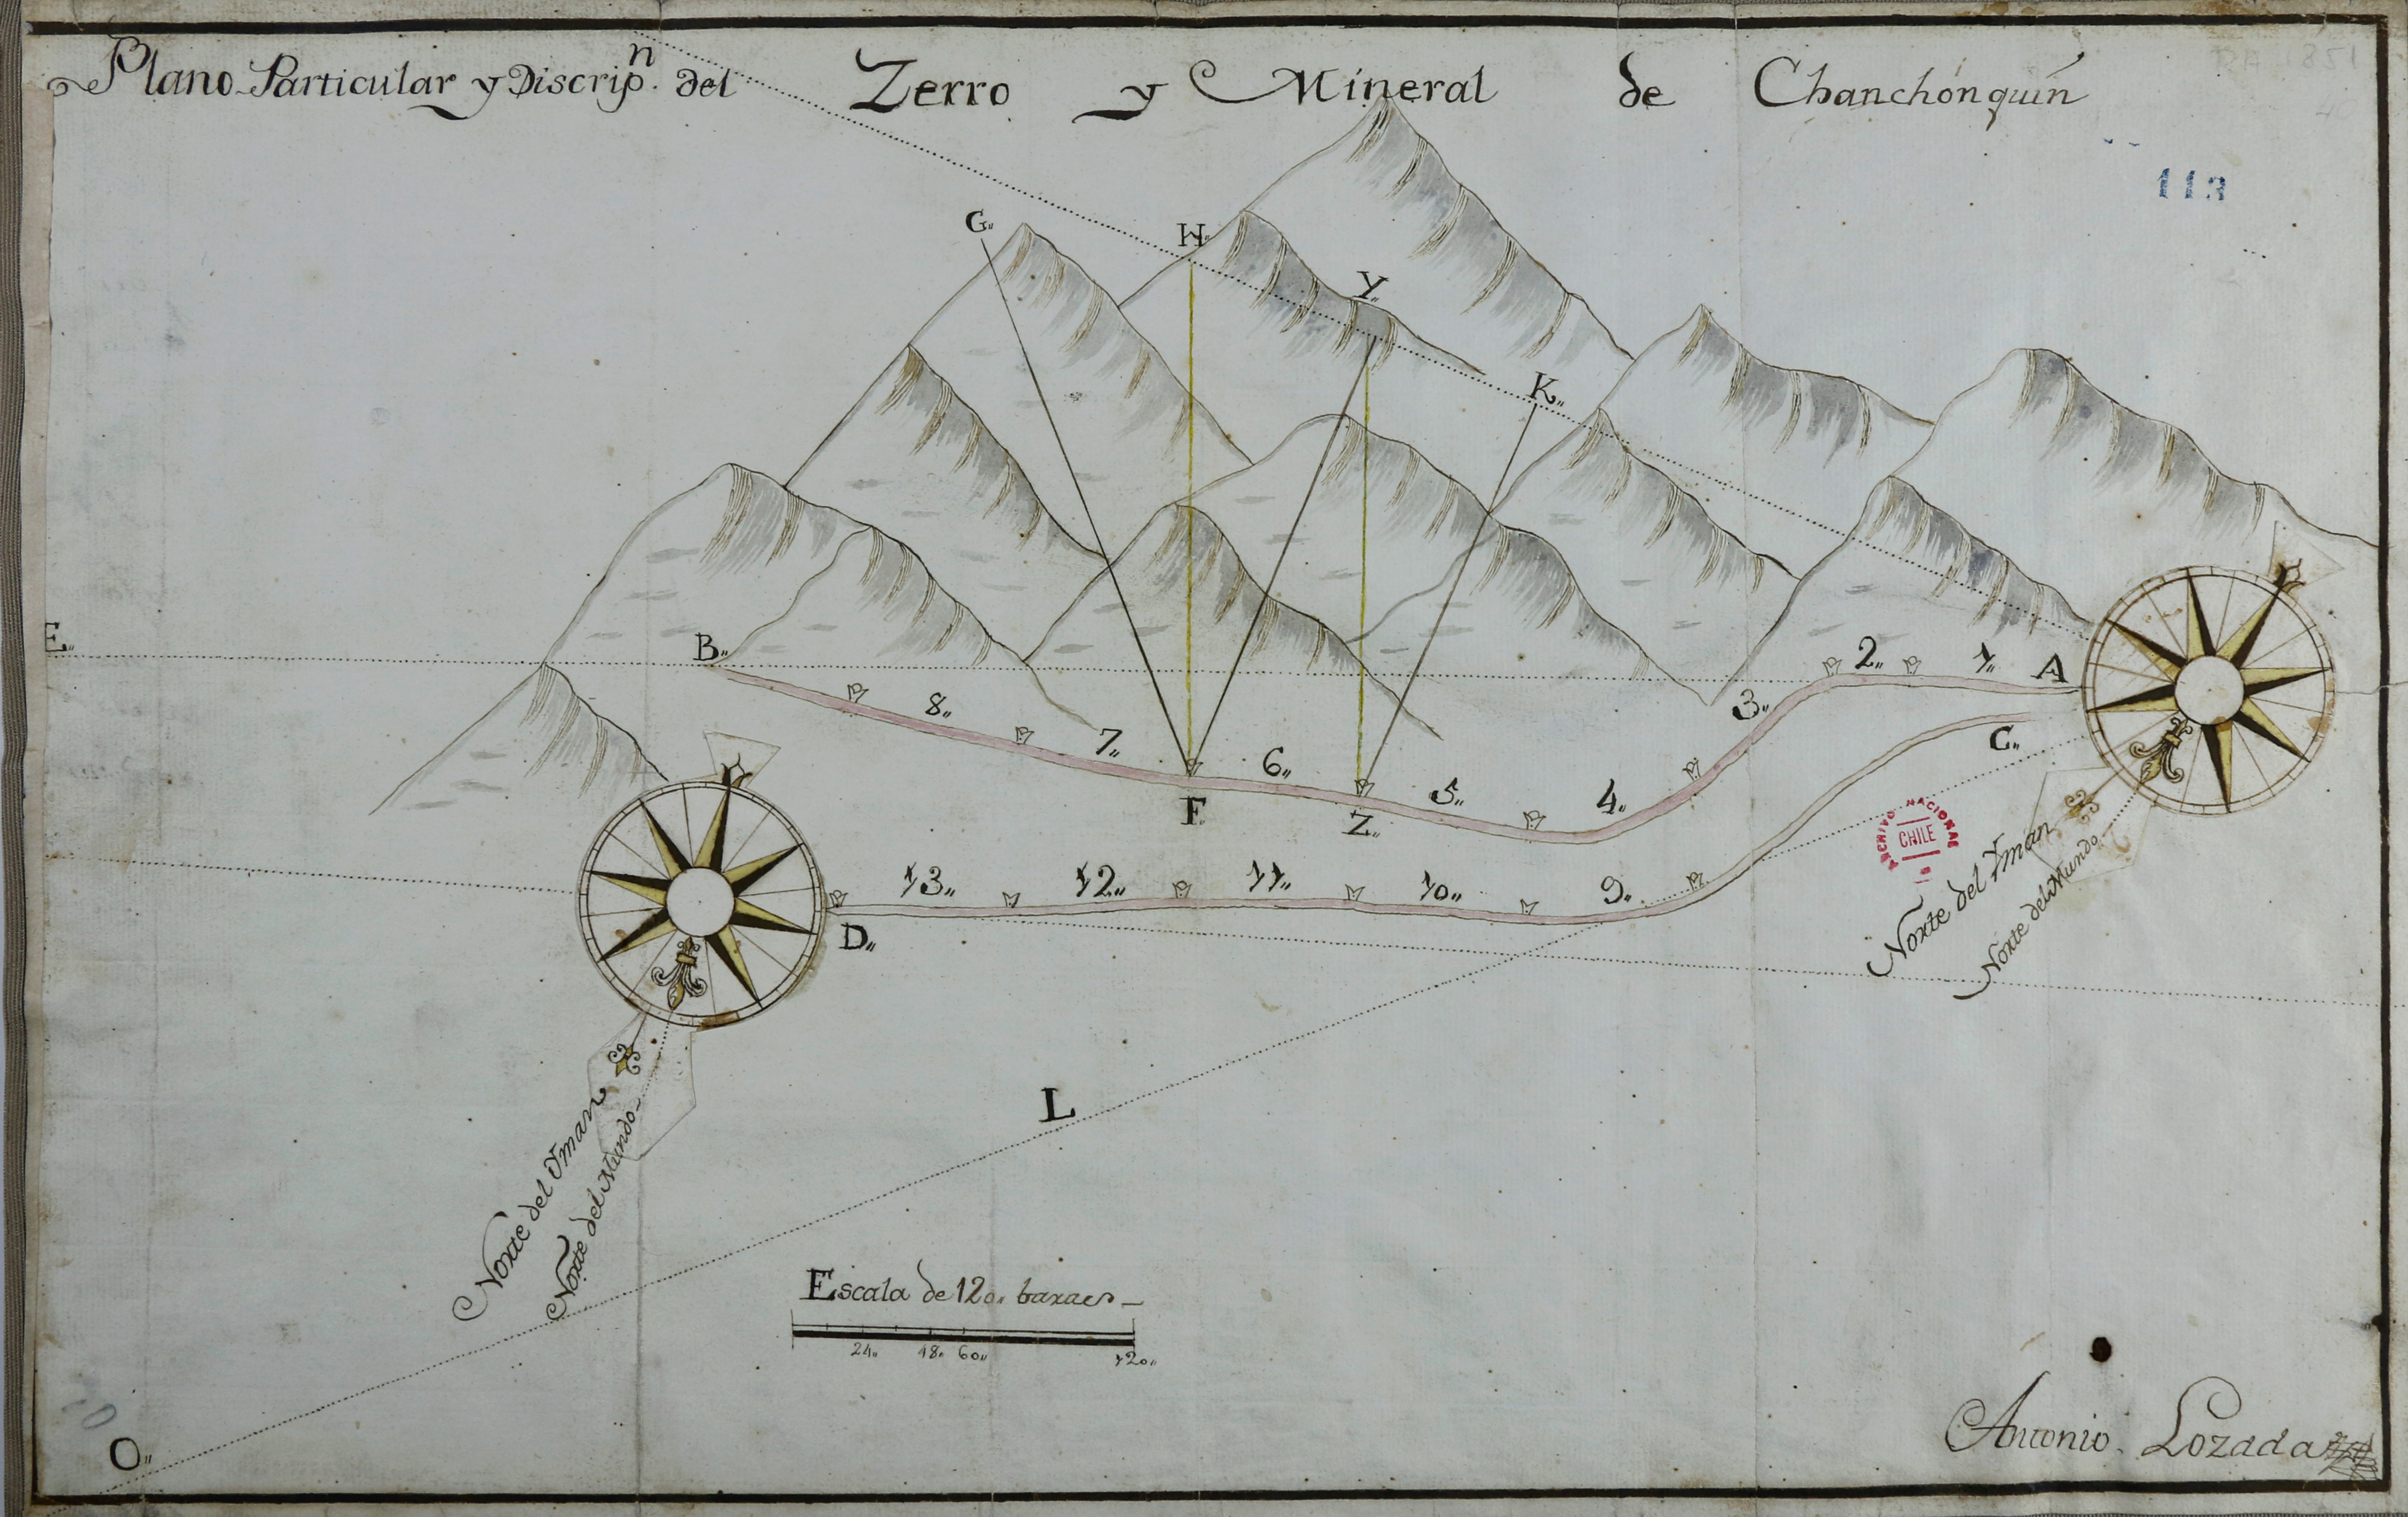 Plano Particular y Discripn. del Zerro y Mineral de Chanchonquin
113
G"
H"
Y"
K"
E"
B"
8"
7"
6"
5"
4"
3"
2"
1"
A
F
Z"
C"
13"
12"
11"
10"
9"
D"
ARCHIVO NACIONAL
CHILE
Norte del Yman
Norte del Mundo
Norte del Yman
Norte del Mundo
L
O"
Escala de 120" baraes
24" 48" 60" 120"
Antonio Lozada